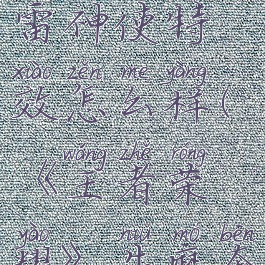 雷神使特
xiào zěn me yàng
效怎么样(
wáng zhě róng
《王者荣
yào niú mó běn
耀》牛魔